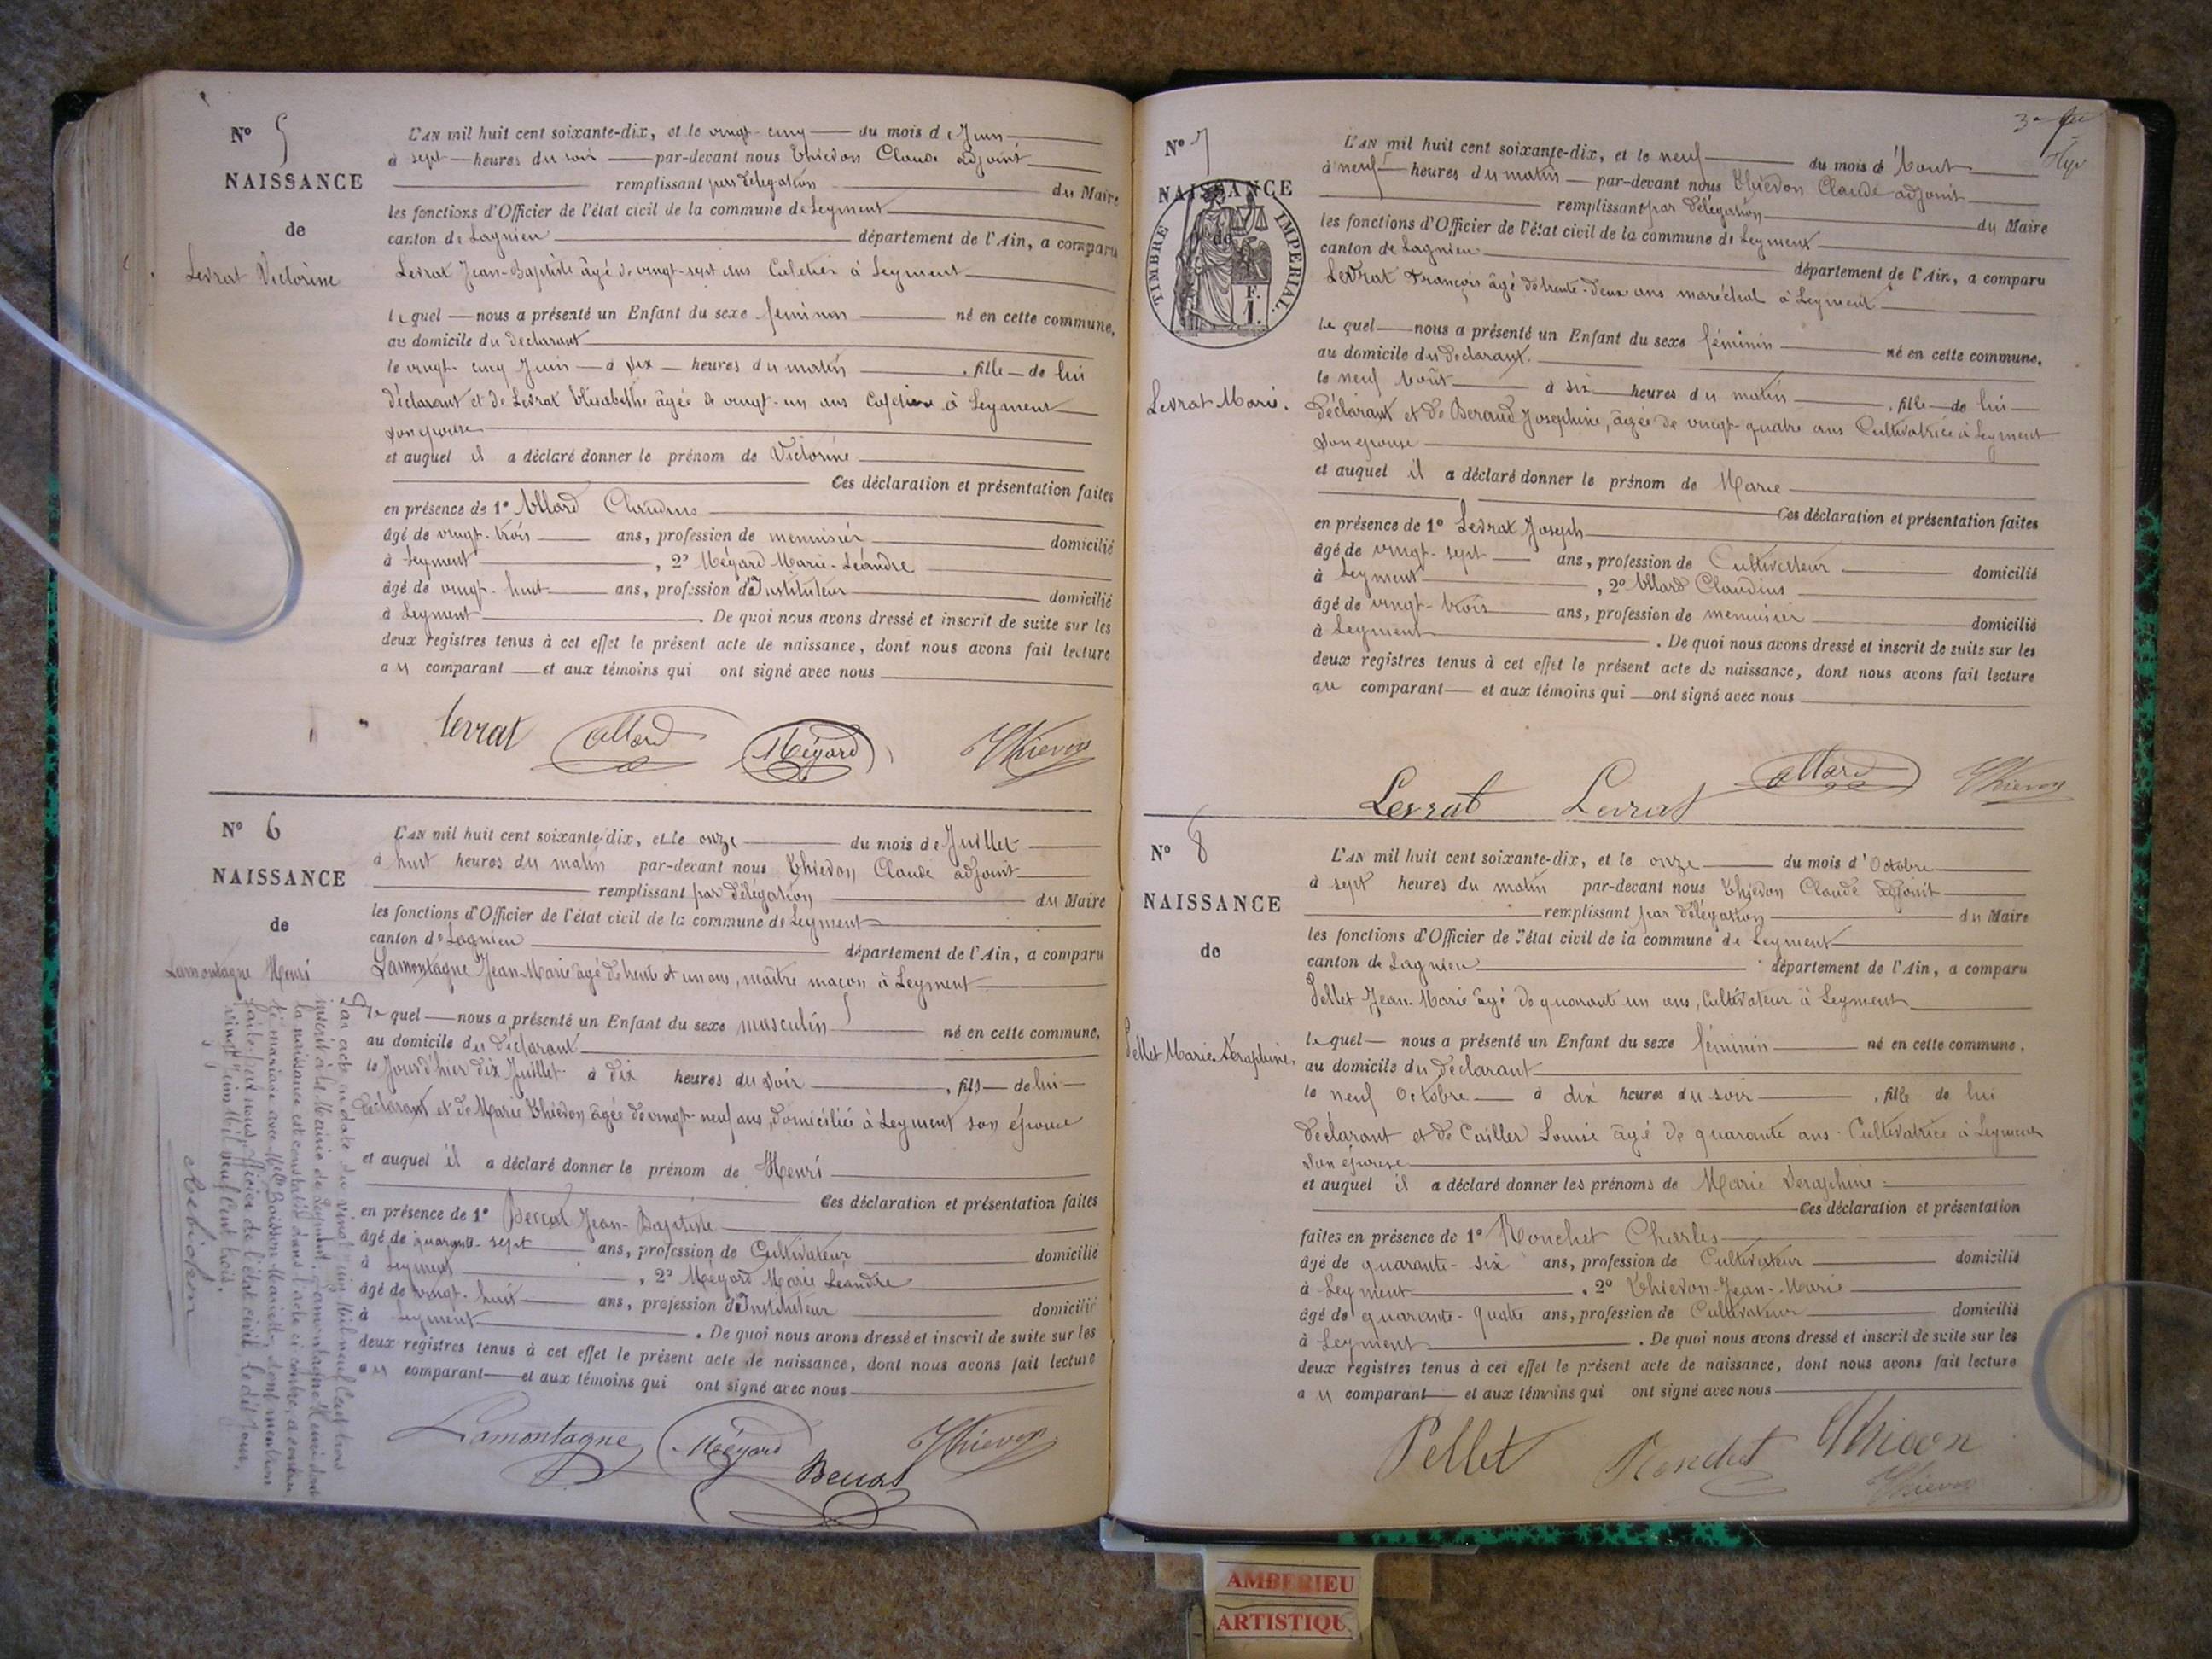 N° 5
NAISSANCE
de
Levrat Victorine
L'AN mil huit cent soixante-dix, et le vingt-cinq du mois de Juin
à sept heures du soir par-devant nous Thiévon Claude adjoint
remplissant par délégation du Maire
les fonctions d'Officier de l'état civil de la commune de Leyment
canton de Lagnieu département de l'Ain, a comparu
Levrat Jean-Baptiste âgé de vingt-sept ans Cafetier à Leyment
lequel nous a présenté un Enfant du sexe féminin né en cette commune,
au domicile du déclarant
le vingt-cinq Juin à dix heures du matin , fille de lui
déclarant et de Levrat Elisabethe âgée de vingt-un ans Cafetière à Leyment
son épouse
et auquel il a déclaré donner le prénom de Victorine
Ces déclaration et présentation faites
en présence de 1° Allard Claudius
âgé de vingt-trois ans, profession de menuisier domicilié
à Leyment , 2° Mégard Marie-Léandre
âgé de vingt-huit ans, profession d'Instituteur domicilié
à Leyment . De quoi nous avons dressé et inscrit de suite sur les
deux registres tenus à cet effet le présent acte de naissance, dont nous avons fait lecture
au comparant et aux témoins qui ont signé avec nous
Levrat Allard Mégard Thievon
N° 6
NAISSANCE
de
Lamontagne Henri
L'AN mil huit cent soixante-dix, et le onze du mois de Juillet
à huit heures du matin par-devant nous Thiévon Claude adjoint
remplissant par délégation du Maire
les fonctions d'Officier de l'état civil de la commune de Leyment
canton de Lagnieu département de l'Ain, a comparu
Lamontagne Jean-Marie âgé de trente et un ans, maître maçon à Leyment
lequel nous a présenté un Enfant du sexe masculin né en cette commune,
au domicile du déclarant
le Jour d'hier dix Juillet à dix heures du soir , fils de lui
déclarant et de Marie Thiévon âgée de vingt-neuf ans, domiciliés à Leyment son épouse
et auquel il a déclaré donner le prénom de Henri
Ces déclaration et présentation faites
en présence de 1° Jean-Baptiste
âgé de quarante-sept ans, profession de Cultivateur domicilié
à Leyment , 2° Mégard Marie Léandre
âgé de vingt-huit ans, profession d'Instituteur domicilié
à Leyment . De quoi nous avons dressé et inscrit de suite sur les
deux registres tenus à cet effet le présent acte de naissance, dont nous avons fait lecture
au comparant et aux témoins qui ont signé avec nous
Lamontagne Mégard Thievon
Par acte en date du vingt juin Mil neuf Cent trois
inscrit à la Mairie de Leyment, Lamontagne Henri dont
la naissance est constatée dans l'acte ci contre, a contracté
mariage avec Melle Buisson Mariette, dont mention
faite par nous, officier de l'état civil, le dit jour,
vingt juin Mil neuf Cent trois.
N° 7
NAISSANCE
de
TIMBRE IMPERIAL.
1 F.
Levrat Marie.
L'AN mil huit cent soixante-dix, et le neuf du mois d'Aout
à neuf heures du matin par-devant nous Thiévon Claude adjoint
remplissant par délégation du Maire
les fonctions d'Officier de l'état civil de la commune de Leyment
canton de Lagnieu département de l'Ain, a comparu
Levrat François âgé de trente-deux ans maréchal à Leyment
lequel nous a présenté un Enfant du sexe féminin né en cette commune,
au domicile du déclarant.
le neuf Août à six heures du matin , fille de lui
déclarant et de Beraud Josephine, âgée de vingt-quatre ans Cultivatrice à Leyment
son épouse
et auquel il a déclaré donner le prénom de Marie
Ces déclaration et présentation faites
en présence de 1° Levrat Joseph
âgé de vingt-sept ans, profession de Cultivateur domicilié
à Leyment , 2° Allard Claudius
âgé de vingt-trois ans, profession de menuisier domicilié
à Leyment . De quoi nous avons dressé et inscrit de suite sur les
deux registres tenus à cet effet le présent acte de naissance, dont nous avons fait lecture
au comparant et aux témoins qui ont signé avec nous
Levrat Levrat Allard Thievon
N° 8
NAISSANCE
de
Pellet Marie Séraphine.
L'AN mil huit cent soixante-dix, et le onze du mois d'Octobre
à sept heures du matin par-devant nous Thiévon Claude adjoint
remplissant par délégation du Maire
les fonctions d'Officier de l'état civil de la commune de Leyment
canton de Lagnieu département de l'Ain, a comparu
Pellet Jean-Marie âgé de quarante un ans, Cultivateur à Leyment
lequel nous a présenté un Enfant du sexe féminin né en cette commune,
au domicile du déclarant
le neuf Octobre à dix heures du soir , fille de lui
déclarant et de Cailler Louise âgé de quarante ans Cultivatrice à Leyment
son épouse
et auquel il a déclaré donner les prénoms de Marie Seraphine
Ces déclaration et présentation
faites en présence de 1° Ronchet Charles
âgé de quarante-six ans, profession de Cultivateur domicilié
à Leyment , 2° Thiévon Jean-Marie
âgé de quarante-quatre ans, profession de Cultivateur domicilié
à Leyment . De quoi nous avons dressé et inscrit de suite sur les
deux registres tenus à cet effet le présent acte de naissance, dont nous avons fait lecture
au comparant et aux témoins qui ont signé avec nous
Pellet Ronchet Thievon
Thievon
AMBERIEU
ARTISTIQUE